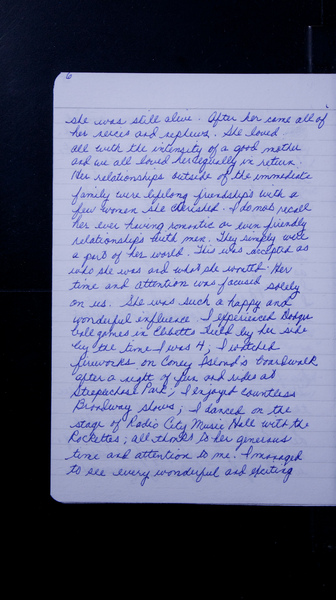 6
she was still alive. After her came all of
her neices and nephews. She loved
all with the intensity of a good mother
and we all loved her equally in return.
Her relationships outside of the immediate
family were lifelong friendships with a
few women she cherished. I do not recall
her ever having romantic or even friendly
relationships with men. They simply were
a part of her world. This was accepted as
who she was and what she wanted. Her
time and attention was focused solely
on us. She was such a happy and
wonderful influence. I experienced Dodger
ball games in Ebbetts Field by her side
by the time I was 4; I watched
fireworks on Coney Island's boardwalk
after a night of fun and rides at
Steeplechase Park; I enjoyed countless
Broadway shows; I danced on the
stage of Radio City Music Hall with the
Rockettes; all thanks to her generous
time and attention to me. I managed
to see every wonderful and exciting